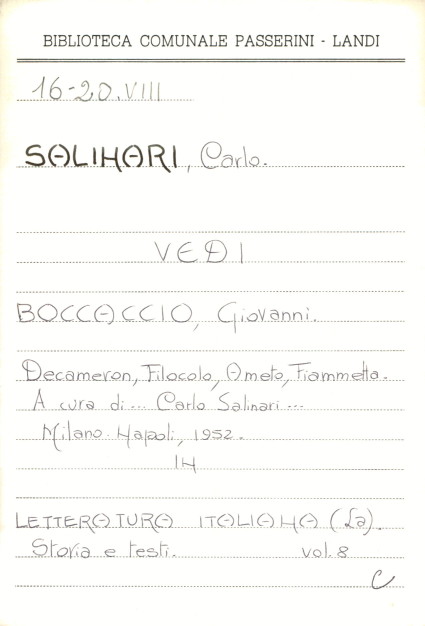 BIBLIOTECA COMUNALE PASSERINI - LANDI
16-20.VIII
SALINARI, Carlo.
VEDI
BOCCACCIO, Giovanni.
Decameron, Filocolo, Ameto, Fiammetta.
A cura di ... Carlo Salinari ...
Milano. Napoli, 1952.
IN
LETTERATURA ITALIANA (La).
Storia e testi. vol. 8
C